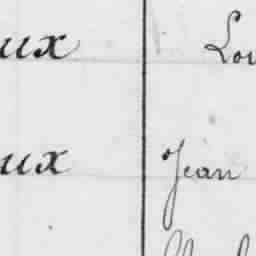 ux Lou
ux Jean